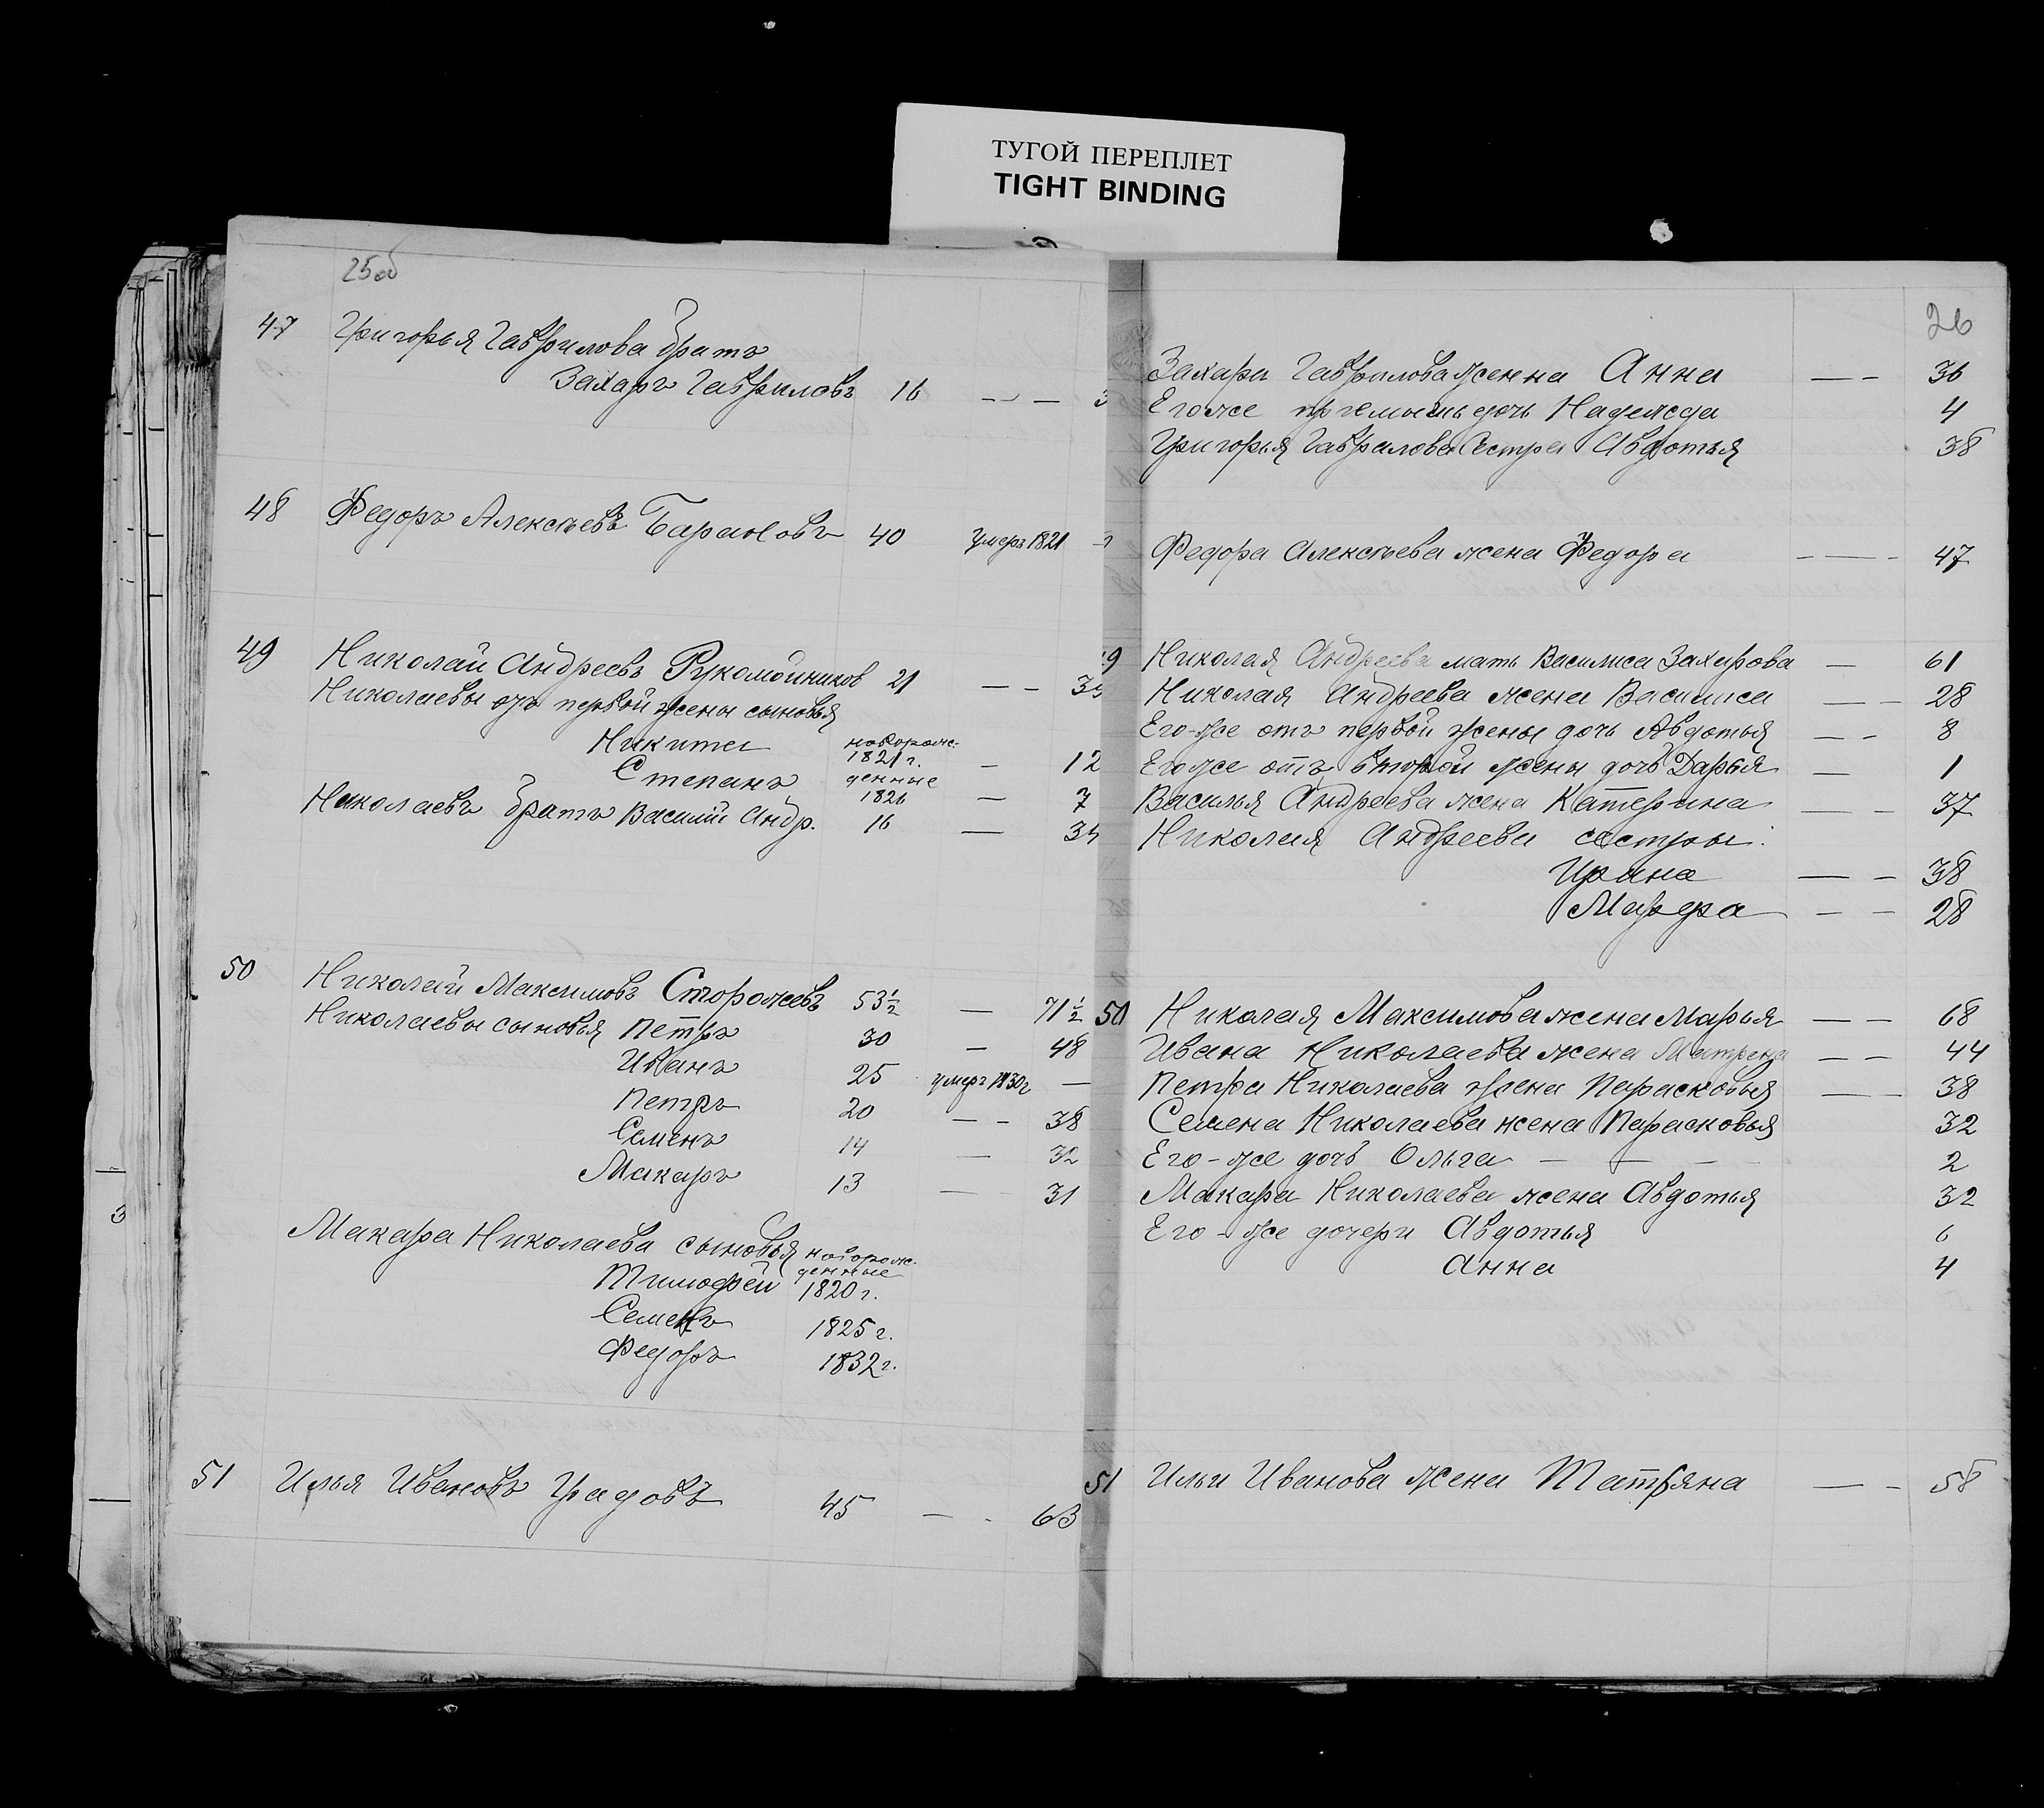 ТУГОЙ ПЕРЕПЛЕТ
TIGHT BINDING
25об
47 Григорья Гаврилова братъ
Захаръ Гавриловъ 16 — — 3
48 Федоръ Алексѣевъ 40 умеръ 1821 —
49 Николай Андреевъ Рукомойников 21 — — 39
Николаевы отъ первой жены сыновья
Никита новорож- 1821 г. — 12
Степанъ денные 1826 — 7
Николаевъ братъ Василий Андр. 16 — 34
50 Николай Максимовъ Сторожевъ 53 1/2 — 71 1/2
Николаевы сыновья Петръ 30 — 48
Иванъ 25 умеръ 1830 г —
Петръ 20 — — 38
Семенъ 14 — 32
Макаръ 13 — 31
Макара Николаева сыновья новорож-
денные
Тимофей 1820 г.
Семенъ 1825 г.
Федоръ 1832 г.
51 Илья Ивановъ 45 — - 63
26
Захара Гаврилова женна Анна — — 36
Его же дочь Надежда 4
Григорья Гаврилова сестра Авдотья 38
Федора Алексѣева жена Федора — — - 47
49 Николая Андреева мать Василиса Захарова — 61
Николая Андреева жена Василиса — — 28
Его-же отъ первой жены дочь Авдотья — - 8
Его же отъ второй жены дочь Дарья — 1
Василья Андреева жена Катерина — — 37
Николая Андреева сестры:
Ирина — — 38
Марфа — — 28
50 Николая Максимова жена Марья — — 68
Ивана Николаева жена Матрена — — 44
Петра Николаева жена Парасковья — — 38
Семена Николаева жена Парасковья 32
Его-же дочь Ольга — — — 2
Макара Николаева жена Авдотья 32
Его-же дочери Авдотья 6
Анна 4
51 Ильи Иванова жена Татьяна — - 58
3